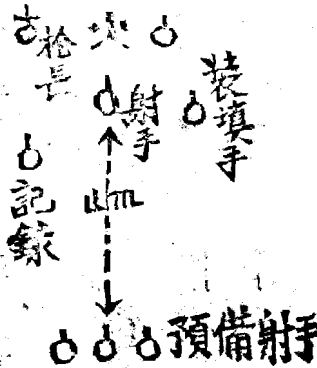 槍長
射手
装填手
記錄
預備射手